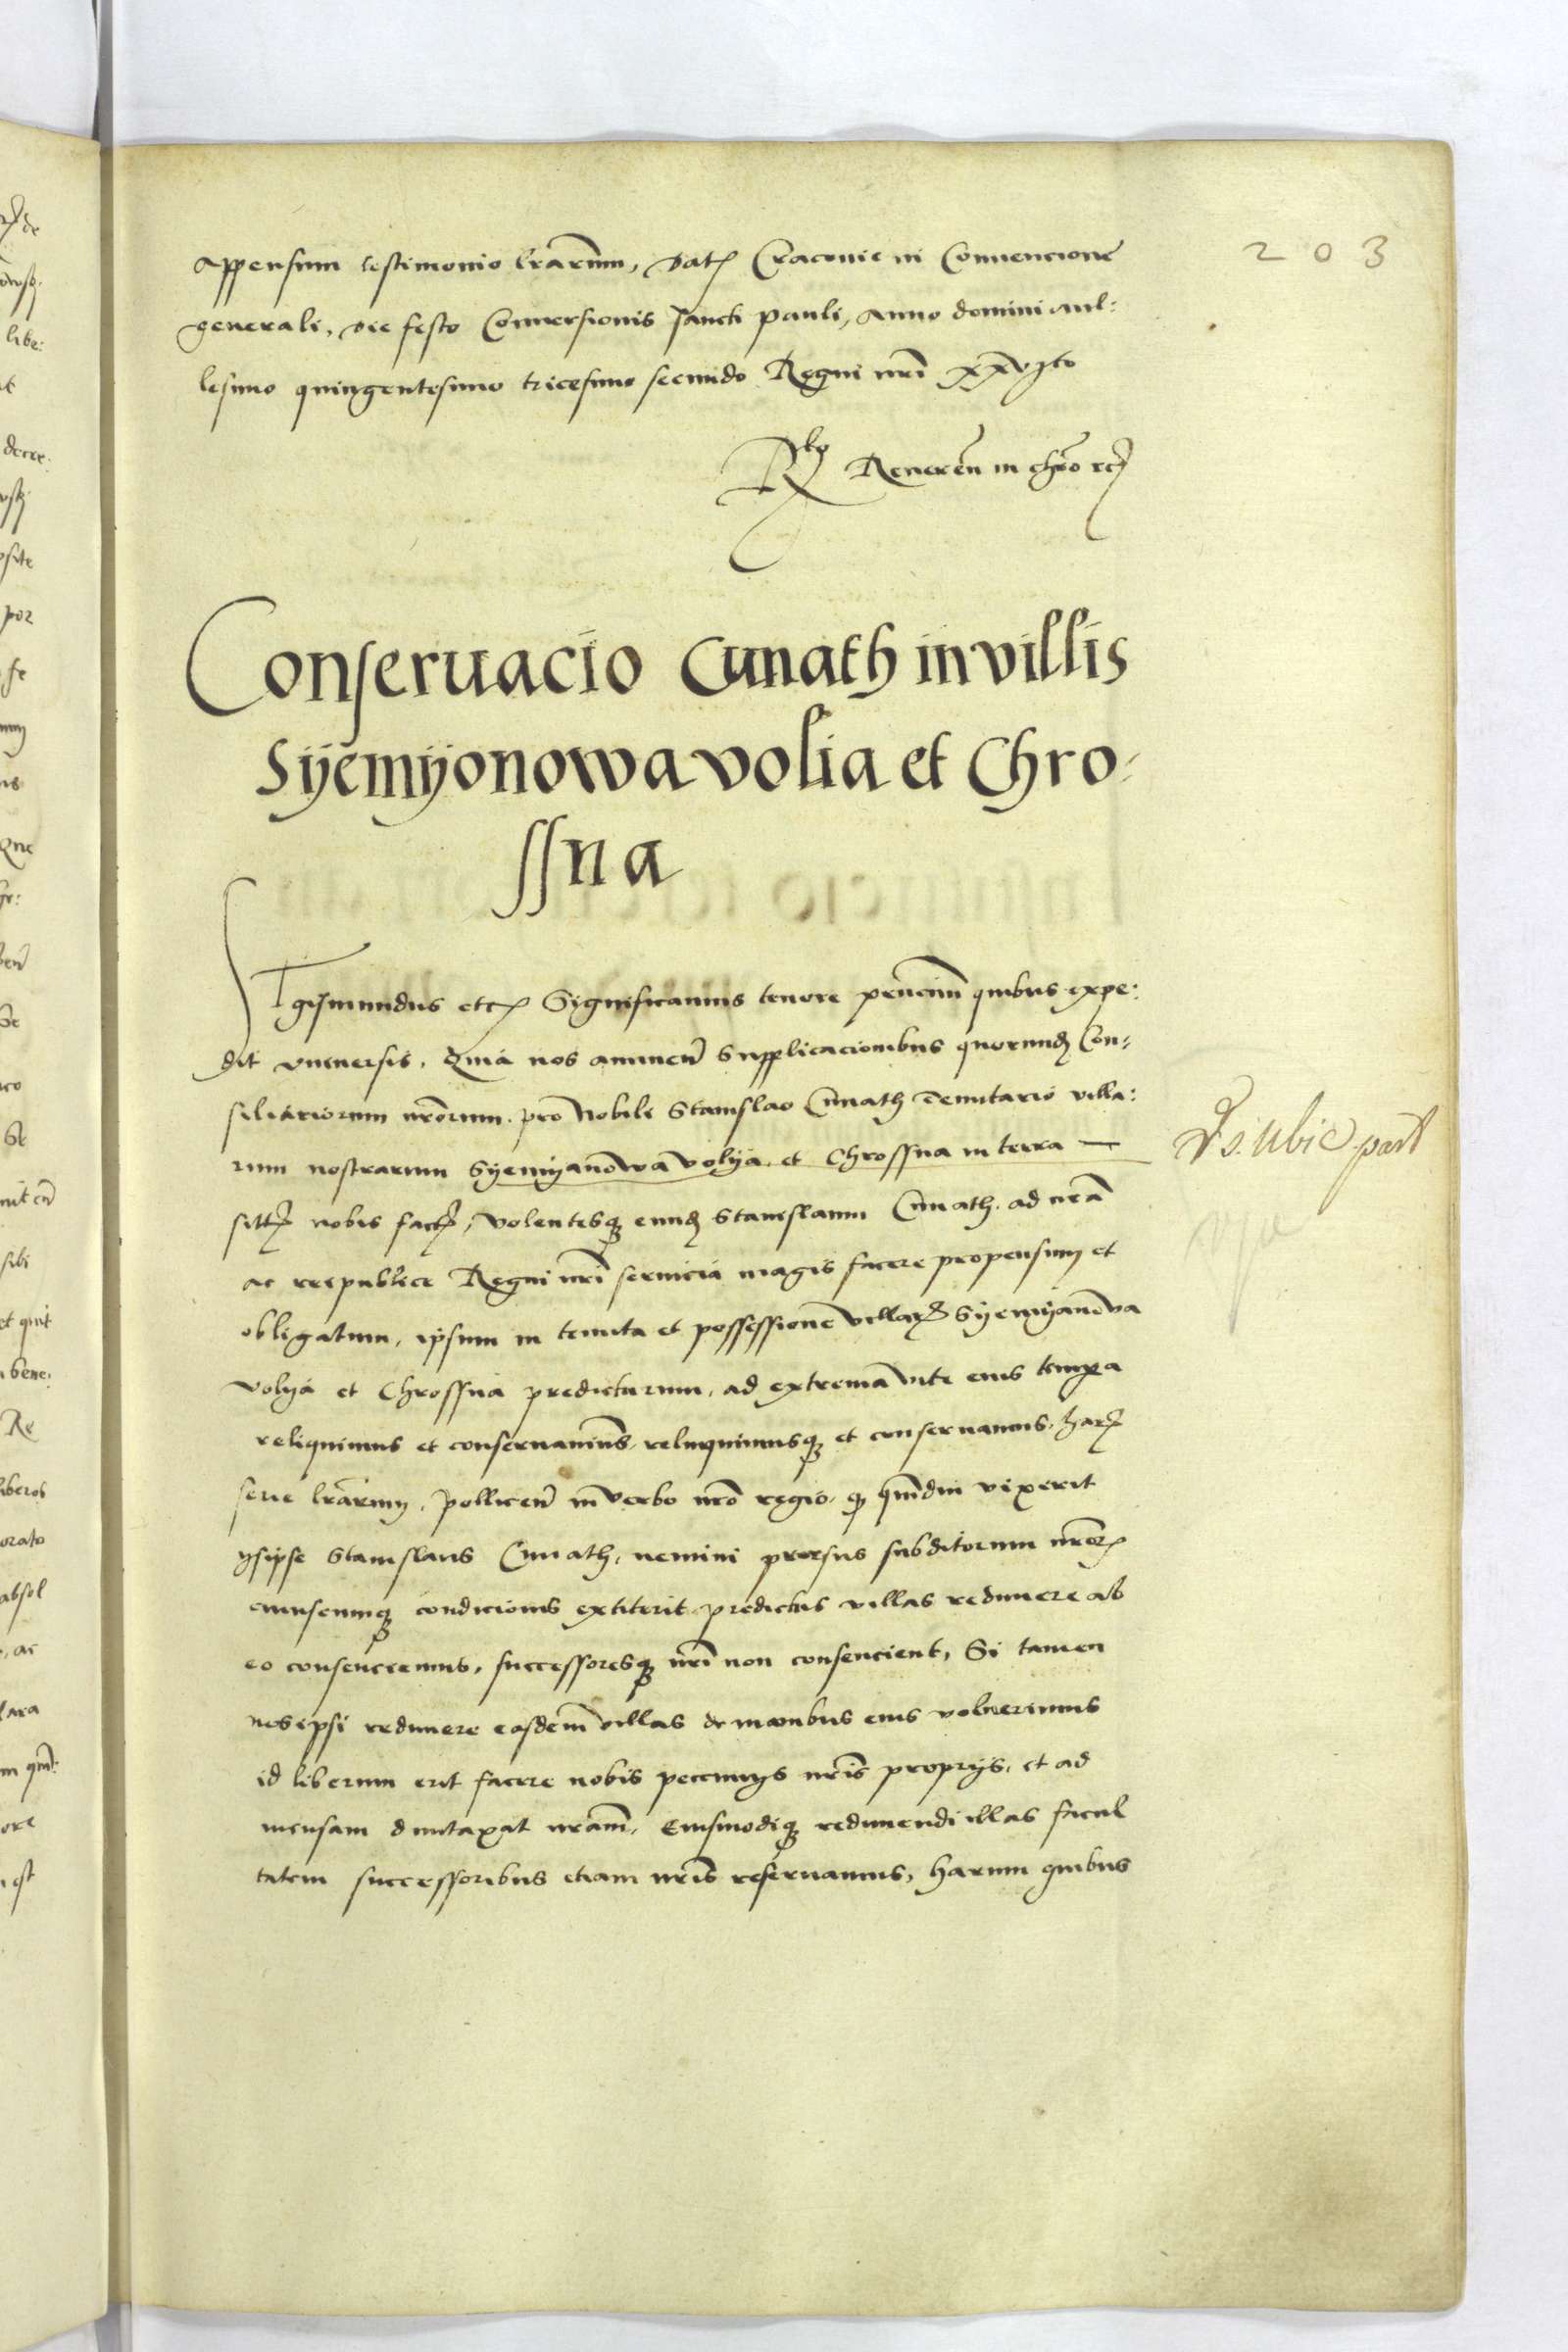 203
appensum testimonio lrarum, Dat Cracovie in Conuencione
generali, die festo Conuersionis sancti pauli, anno domini mil:
lesimo quingentesimo tricesimo secundo Regni nri xxvjto
Rlo Reueren in chro etc
Conseruacio Cunath in villis
Syemyonowa volia et Chro-
ssna
Sigismundus etc Significamus tenore pencium quibus expe:
dit vniuersis. Quia nos annuen supplicacionibus quorund Con-
siliariorum nrorum pro Nobili Stanislao Cunath Tenutario villa:
rum nostrarum Syemyanowa volya et Chrossna in terra —
sitt nobis fact, volentesq eund Stanislaum Cunath ad nra
ac reipublice Regni nri seruicia magis facere propensum et
obligatum, ipsum in tenuta et possessione villar Syemyanowa
volya et Chrossna predictarum, ad extrema vite eius tempora
reliquimus et conseruauimus, relinquimusq et conseruamus. har
serie lrarum. Pollicen in verbo nro regio, q qmdiu vixerit
ipse Stanislaus Cunath, nemini prorsus subditorum nror
cuiuscunq condicionis extiterit predictas villas redimere ab
eo consenciemus, successoresq nri non consencient, Si tamen
nos ipsi redimere easdem villas de manibus eius voluerimus
id liberum erit facere nobis pecunijs nris proprijs, et ad
mensam duntaxat nram, Eiusmodiq redimendi illas facul
tatem successoribus etiam nris reseruamus, harum quibus
s. ubie. part